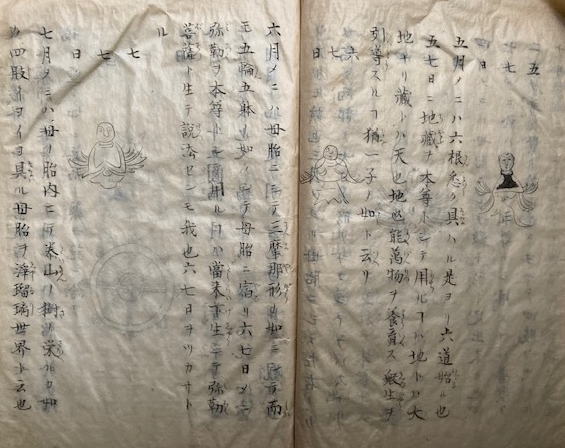 五
七
日
五月メニハ六根悉ク具ハル是ヨリ六道始ル也
五七日ニ地蔵ヲ本尊トシテ用ルヿハ地トハ大
地ナリ藏トハ天也地也能萬物ヲ養育ス衆生ヲ
引導スルヿ猶一子ノ如ト云リ
六
七
日
六月メニハ母胎ニ三摩那形ノ如ニ 而
五輪五躰ノ如ニシテ母胎ニ宿リ六七日メニ
弥勒ヲ本尊トシテ用ルヿハ當来下生シテ弥勒
菩薩ト生テ說法セン我也六七日ヲツカサト
ル
七
七
日
七月メニハ母ノ胎内ニテ泰山ノ樹ノ栄ルカ如
四肢イヨイヨ具ル母胎ヲ浄瑠璃世界ト云也